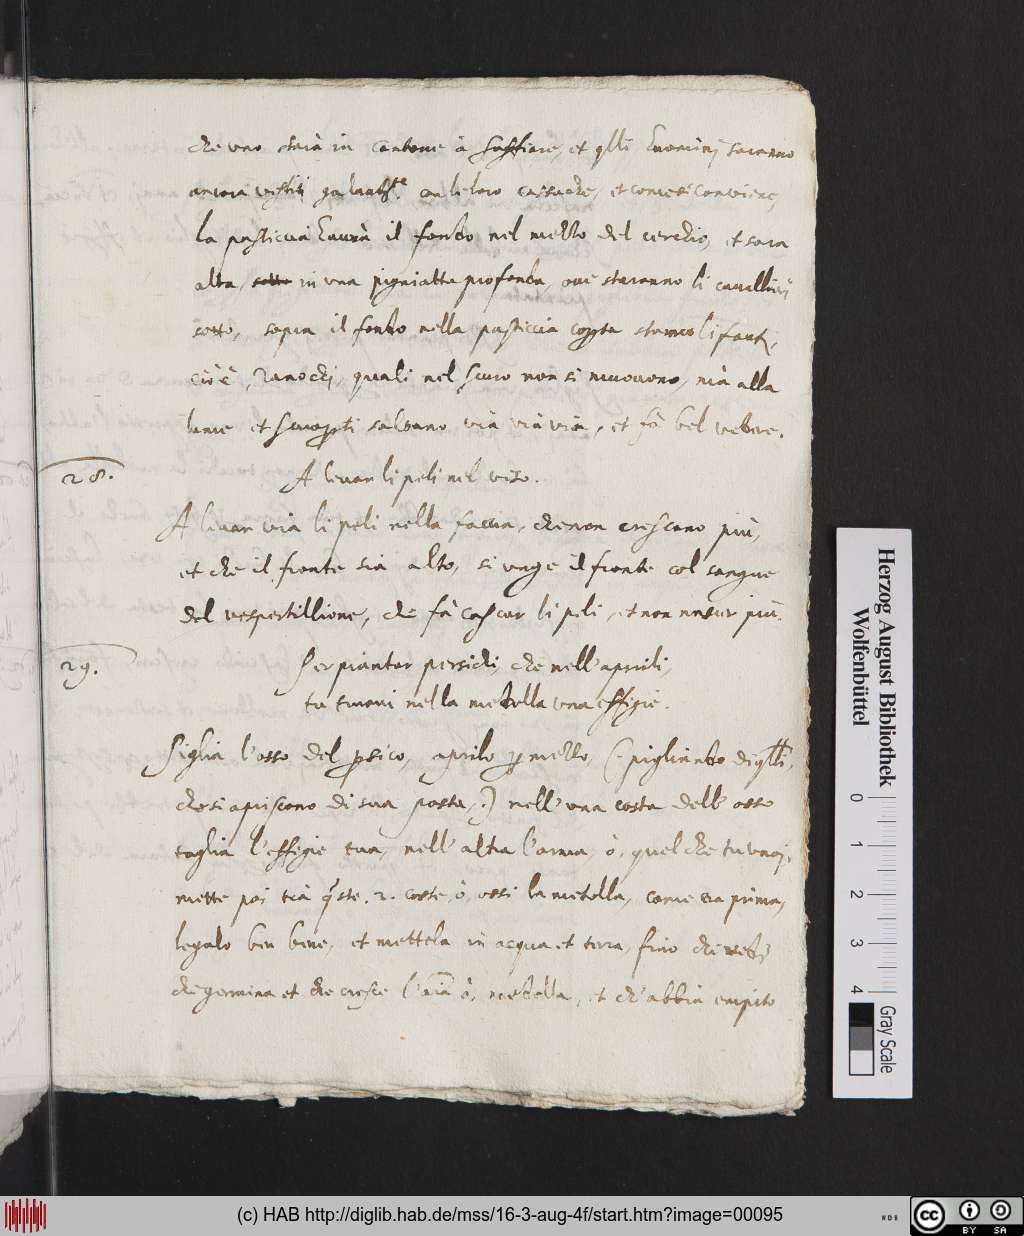 che uno starà in cantone à soffiare, et qlli huomini saranno
ancora vestiti con le loro casacche, et come si conviene,
la pasticcia haurà il fondo nel mezzo del cerchio, et sara
alta, in una pigniatta profonda, oue staranno li
sotto, sopra il fondo nella pasticcia li fanti,
cioè, Ranocchi, quali nel scuro non si muouono, mà alla
lume et scuoperti saltano via via via, et fà bel vedere.
28. A leuar li peli nel viso.
A leuar via li peli nella faccia, che non crescano più,
et che il fronte sia alto, si unge il fronte col sangue
del vespertillione, che fà cascar li peli, et non più.
29. Per piantar persichi, che nell' aprirli,
tu trovi nella medolla una effigie.
Piglia l'osso del persico, aprilo p mezzo, (: pigliando di qlli,
che si apriscono di sua posta,:) nell' una costa dell' osso
taglia l'effigie tua, nell' altra l'arma, ò, quel che tu vuoi,
mette poi trà qste .2. coste, ò, ossi la medolla, come era prima,
legalo ben bene, et mettela in acqua et terra, fino che vedi
che germina et che cresce l'aïa ò, medolla, et ch' abbia empito
Herzog August Bibliothek
Wolfenbüttel
0 1 2 3 4
Gray Scale
(c) HAB http://diglib.hab.de/mss/16-3-aug-4f/start.htm?image=00095
WDB
cc BY SA